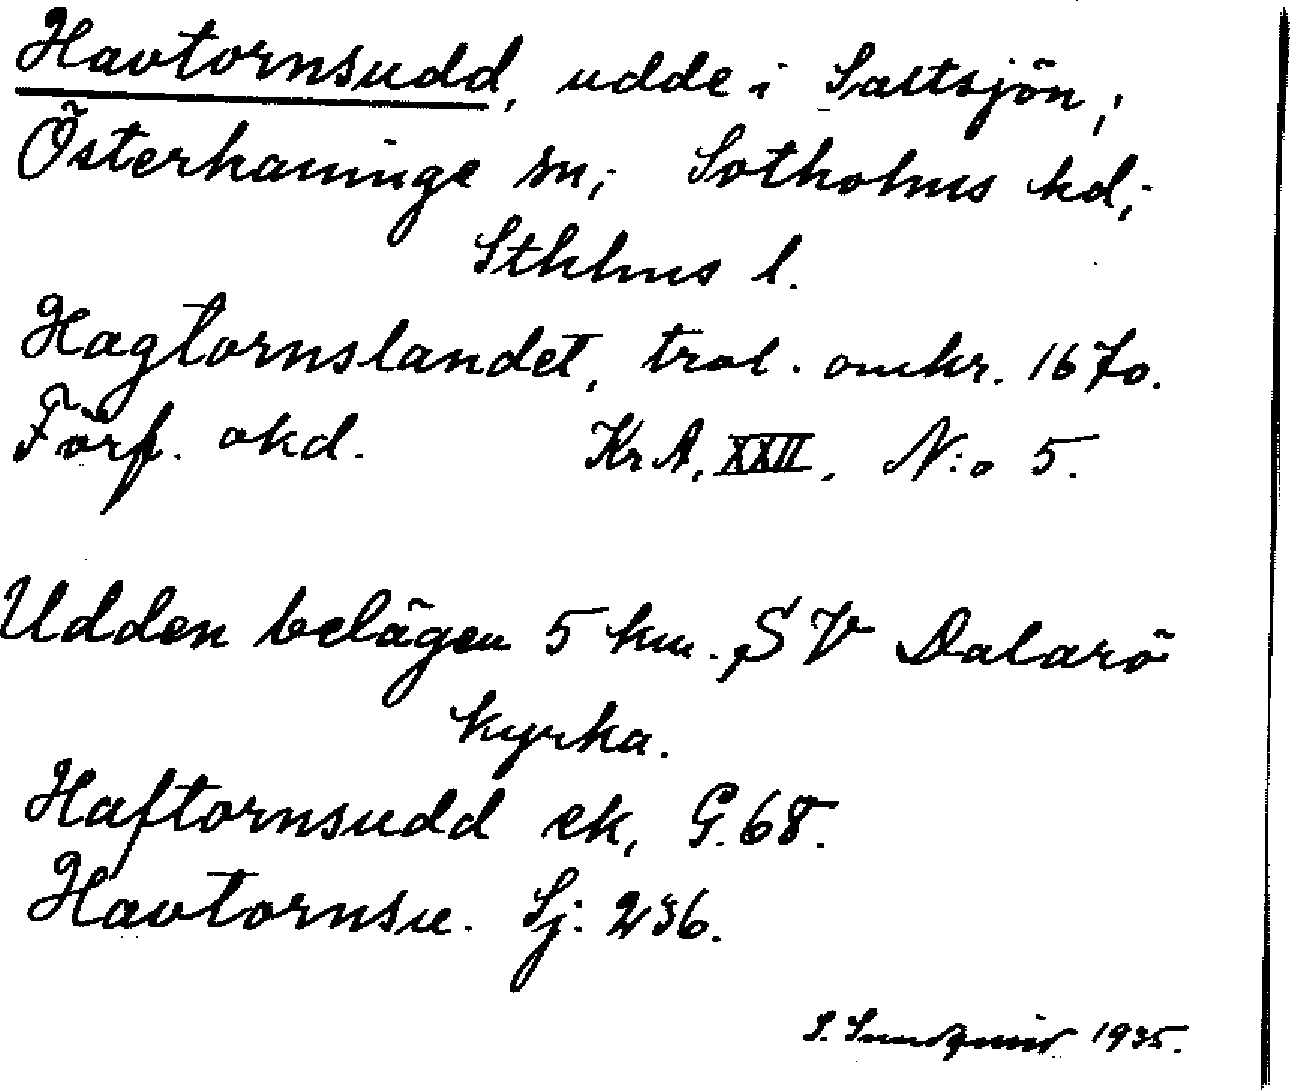 Havtornsudd, udde i Saltsjön,;
Österhaninge sn,; Sotholms hd,;
Sthlms l.
Hagtornslandet, trol. omkr. 1670.
Förf. okd. KrA, XXII, N:o 5.
Udden belägen 5 km. SV Dalarö
kyrka.
Haftornsudd ek, G.68.
Havtornsu. Sj: 236.
S. Sundqvist 1935.